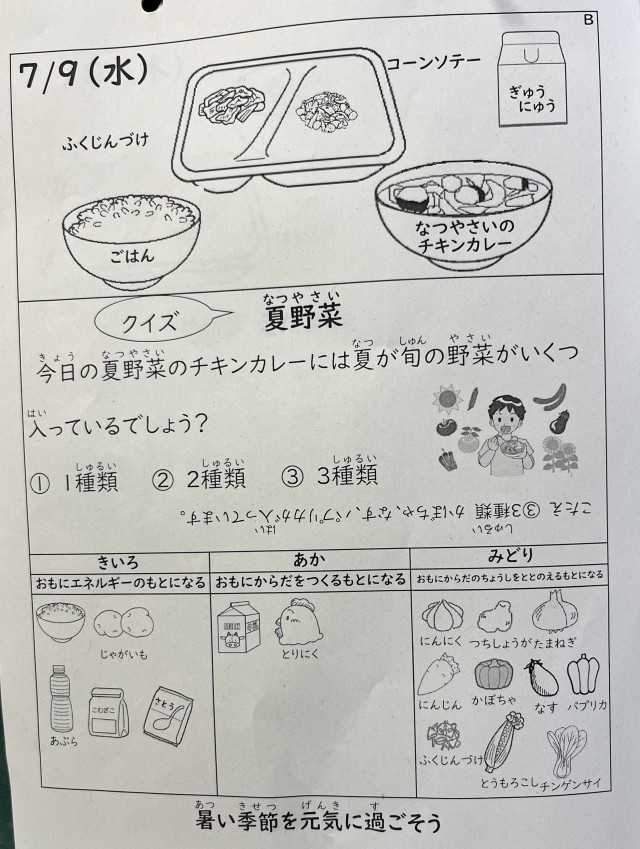 B
7/9(水)
コーンソテー
ぎゅう
にゅう
ふくじんづけ
ごはん
なつやさいの
チキンカレー
クイズ
なつやさい
夏野菜
きょう なつやさい なつ しゅん やさい
今日の夏野菜のチキンカレーには夏が旬の野菜がいくつ
はい
入っているでしょう?
しゅるい しゅるい しゅるい
① 1種類 ② 2種類 ③ 3種類
こたえ ③3種類 かぼちゃ、なす、パプリカが入っています。
しゅるい はい
きいろ あか みどり
おもにエネルギーのもとになる おもにからだをつくるもとになる おもにからだのちょうしをととのえるもとになる
じゃがいも
とりにく
にんにく つちしょうが たまねぎ
にんじん かぼちゃ なす パプリカ
あぶら
こむぎこ
さとう
ふくじんづけ
とうもろこし チンゲンサイ
あつ きせつ げんき す
暑い季節を元気に過ごそう